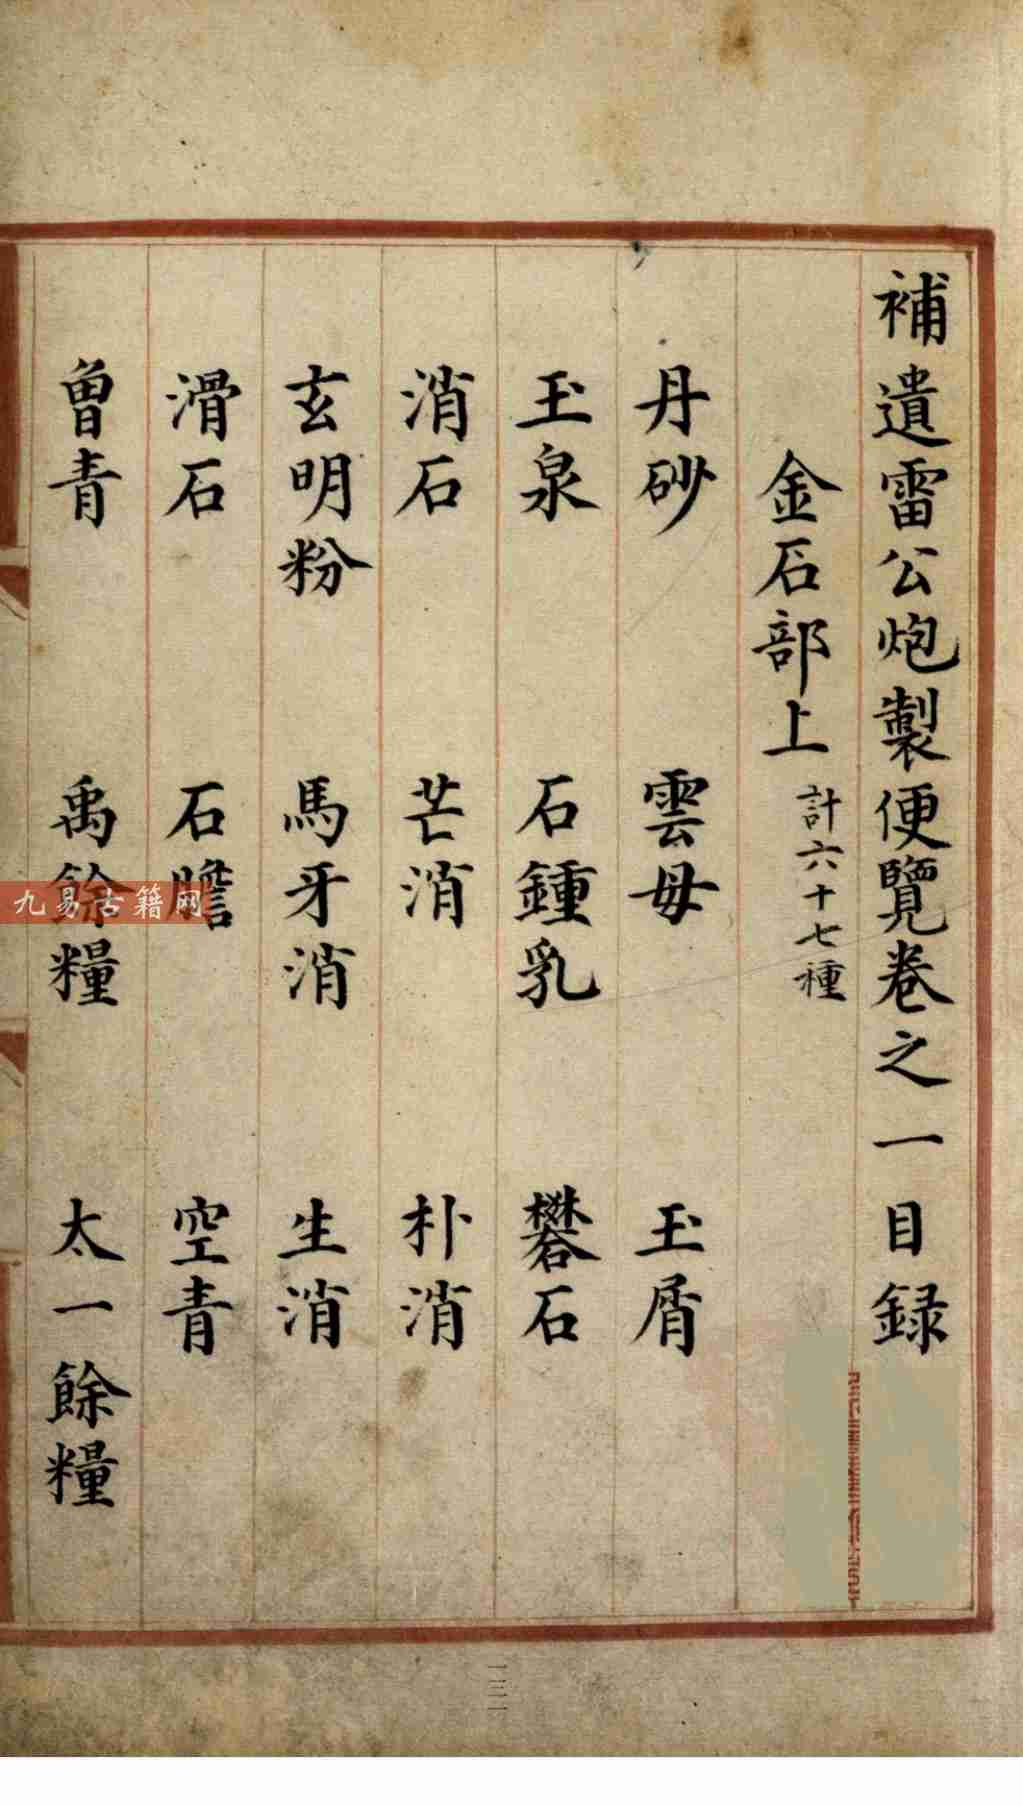 補遺雷公炮製便覽卷之一 目録
金石部上 計六十七種
丹砂 雲母 玉屑
玉泉 石鍾乳 礬石
消石 芒消 朴消
玄明粉 馬牙消 生消
滑石 石膽 空青
曾青 禹餘糧 太一餘糧
九易古籍网